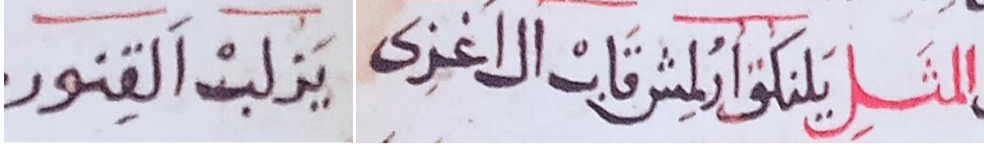 المثَلِ يَلنكَوْا رُلِمش قَابْ ال اَغزى
يَزلبْ اَلقِنور